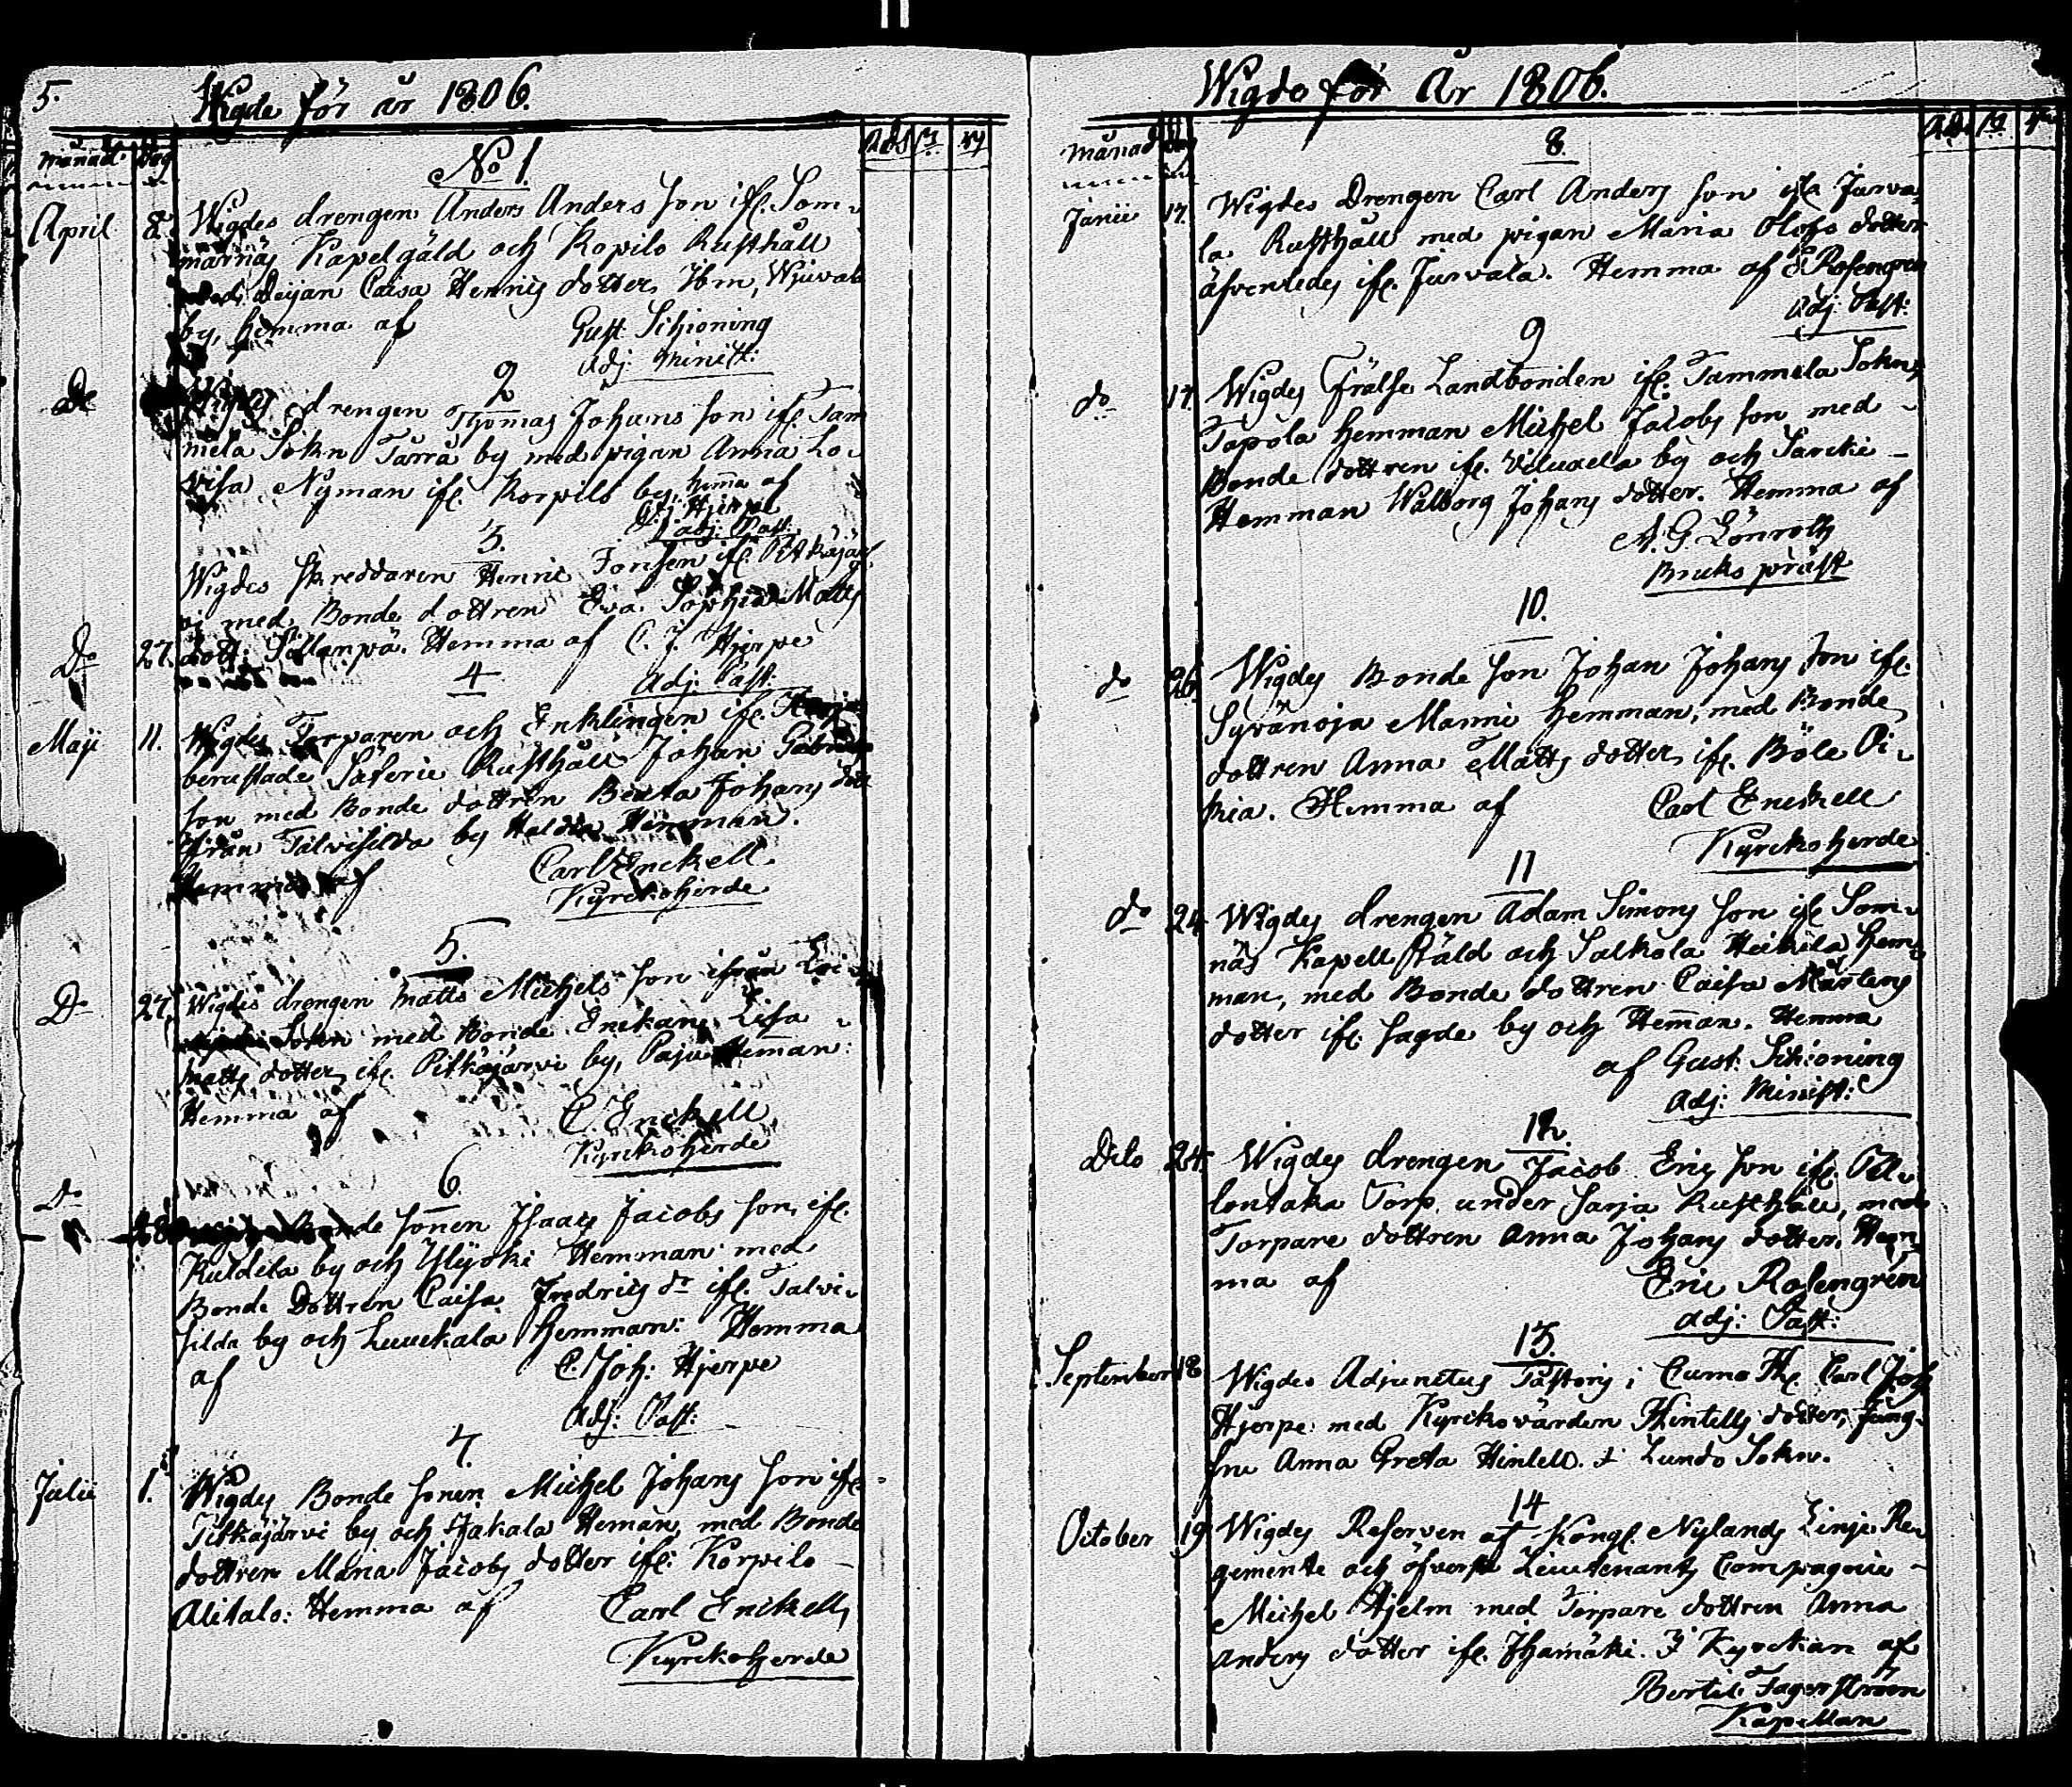 5.
Wigde för år 1806.
månad dag
No 1.
April 8. Wigdes drengen Anders Anders son ifr. Som-
marnäs Kapelgäld och Kopilo Rusthåll
Deijan Caisa Henrics dotter
by, hemma af Gust. Schioning
adj: Minist:
2
Do drengen Thomas Johans son ifr. Tam
mela Sokn Tarra by med pigan Anna Lo-
visa Nyman ifr. Korpilo by, hemma af
C. J. Hjerpe
adj. Past:
3.
Wigdes skreddaren Henric Fonsen ifr. Pitkäjär
vi med Bonde dottren Eva Sophia Matts
Do 27. dott: Sillanpä. Hemma af C. J. Hjerpe
Adj. Past.
4
Maji 11. Wigdes Torparen och Enklingen ifr.
berustade Saferie Rusthåll Johan
son med Bonde dottren Beata Johans dott
ifrån Talvisilda by Hemman.
Hemma af Carl Enckell
Kyrckoherde
5.
Do 27. Wigdes drengen Matts Michels son ifrån
Sokn med Bonde Enckan Lisa
Matts dotter, ifr. Pitkäjärvi by, Paju Heman:
Hemma af C. Enckell
Kyrckoherde
6.
Do
28 Bonde sonen Isaac Jacobs son, ifr.
Kuldila by och Ylijoki Hemman med
Bonde Dottren Caisa Fredrics dr ifr. Talvi-
silda by och Luuckala Hemman: Hemma
af C. Joh: Hjerpe
Adj: Past:
7.
Julii 1. Wigdes Bonde sonen Michel Johans son ifr
Pitkäjärvi by och Jakala Heman, med Bonde
dottren Maria Jacobs dotter ifr: Korpilo
Alitalo: Hemma af Carl Enckell,
Kyrckoherde
Wigde för År 1806.
månad dag
8.
Junii 17. Wigdes Drengen Carl Anders son ifr Jurva-
la Rusthåll med pigan Maria Olofs dotter
äfvenledes ifr. Jurvala. Hemma af E Rosengren
Adj: Past:
9
do 17. Wigdes Frälse Landbonden ifr. Tammela Sokn,
Tapola hemman Michel Jacobs son med
Bonde dottren ifr. by och Sarcki
Hemman Walborg Johans dotter. Hemma af
A. G. Lönroth
Bruks präst
10.
do 26. Wigdes Bonde son Johan Johans son ifr.
Syvänoja Manni hemman, med Bonde
dottren Anna Matts dotter, ifr. Böle Oi-
kia. Hemma af Carl Enckell
Kyrckoherde
11
do 24 Wigdes drengen Adam Simons son ifr Som-
näs Kapell Gäld och Salkola Heikila hem-
man, med Bonde dottren Caisa Mårtens
dotter ifr. Jagde by och Heman. Hemma
af Gust: Schioning
Adj: Minist:
12.
Dito 24. Wigdes drengen Jacob Erics son ifr.
lontaka Torp under Sarja Rusthåll, med
Torpare dottren Anna Johans dotter, Hem-
ma af Eric Rosengrén
adj: Past:
13.
September 18 Wigdes Adjunctus Pastoris i Cumo Hr. Carl Joh
Hjerpe med Kyrckovärden Hintells dotter, Jung-
fru Anna Greta Hintell. i Lundo Sokn.
14
October 19 Wigdes Reserven af Kongl. Nylands Linje Re-
gemente och öfverste Lieutenants Compagnie
Michel Hjelm med Torpare dottren Anna
Anders dotter ifr. Ihamäki. I Kyrckan af
Bertil Fagerström
Kapellan